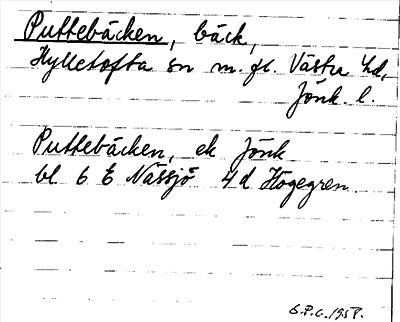 Puttebäcken, bäck,
Hylletofta sn m. fl. Västra hd,
Jönk. l.
Puttebäcken, ek Jönk
bl 6 E Nässjö 4d Högegren.
G.P.C. 1958.